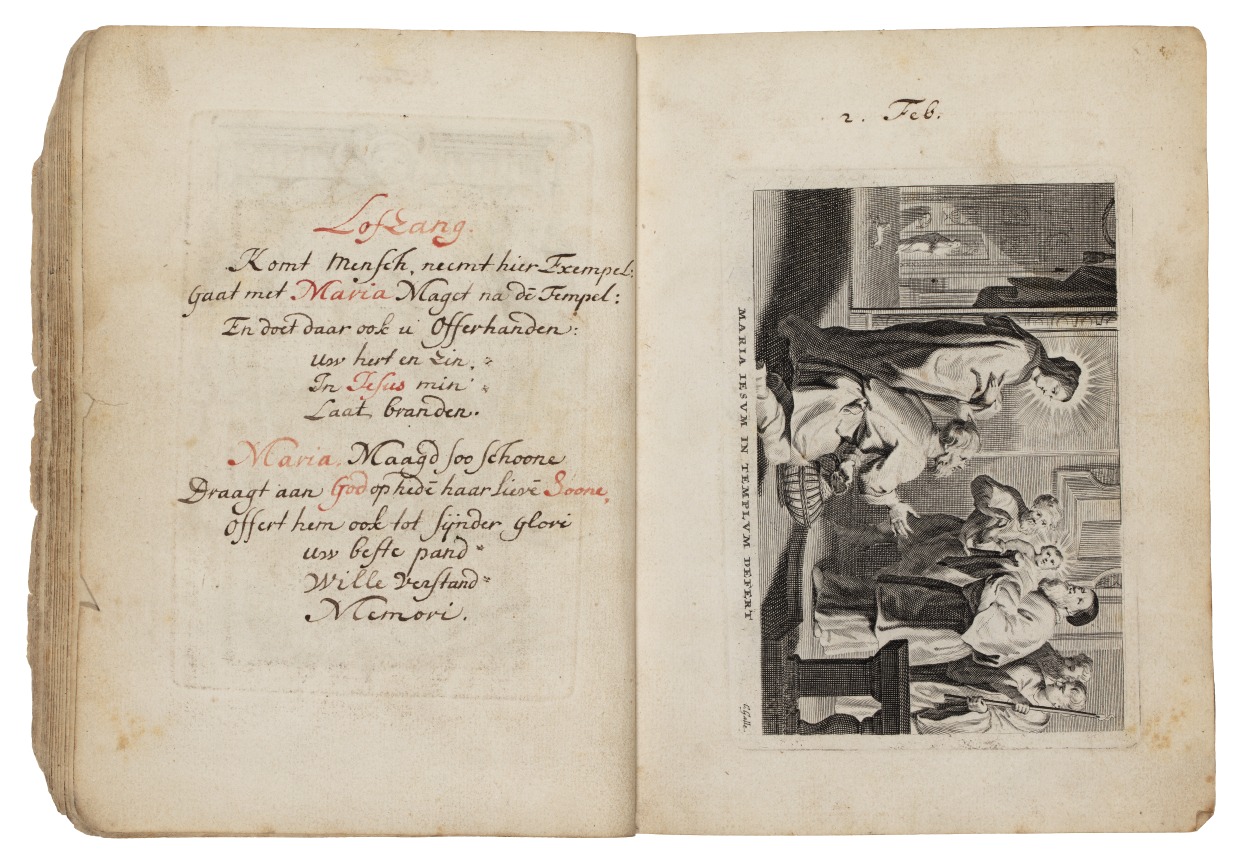 Lofzang.
Komt Mensch, neemt hier Exempel:
Gaat met Maria Maget na dē Tempel:
En doet daar ook u Offerhanden:
uw hert en zin,
In Jesus min
Laat branden.
Maria, Maagd soo schoone
Draagt aan God op hedē haar lievē Soone,
Offert hem ook tot sijnder glori
uw beste pand
Wille verstand
Memori.
2. Feb.
MARIA IESVM IN TEMPLVM DEFERT